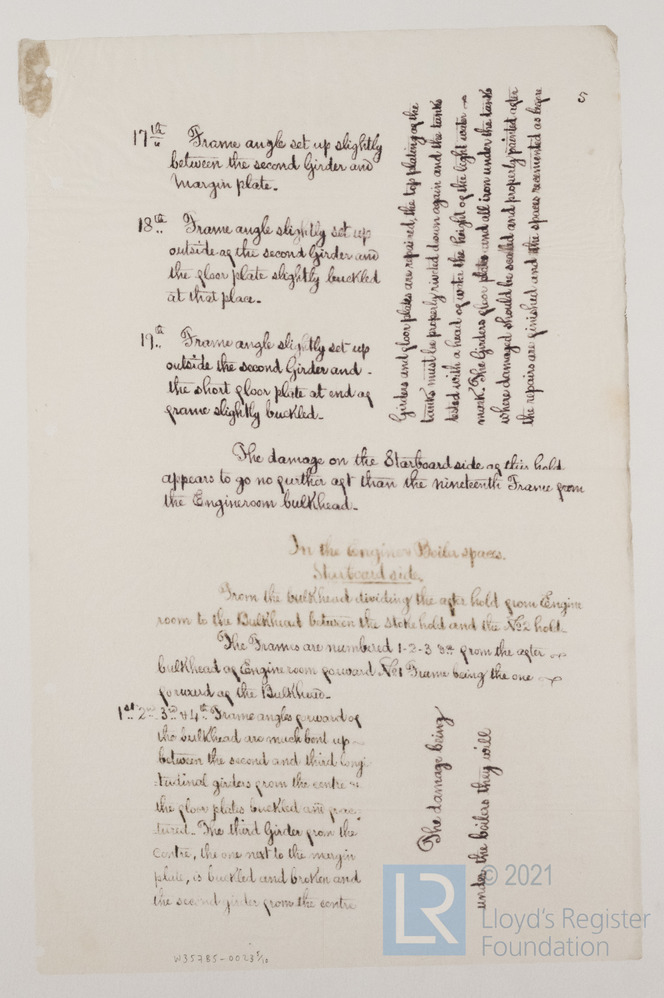 5
17th Frame angle set up slightly
between the second Girder and
Margin plate.
18th Frame angle slightly set up
outside of the second Girder and
the floor plate slightly buckled
at that place.
19th Frame angle slightly set up
outside the second Girder and
the short floor plate at end of
frame slightly buckled.
Girders and floor plates are repaired, the top plating of the
tanks must be properly riveted down again and the tanks
tested with a head of water the height of the light water
mark. The Girders floor plates and all iron under the tanks
where damaged should be scaled and properly painted after
the repairs are finished and the spaces recemented as before
The damage on the Starboard side of this hold
appears to go no further aft than the nineteenth Frame from
the Engineroom bulkhead.
In the Engine & Boiler spaces.
Starboard side.
From the bulkhead dividing the after hold from Engine
room to the Bulkhead between the stokehold and the No 2 hold.
The Frames are numbered 1-2-3 &c from the after
bulkhead of Engineroom forward No 1 Frame being the one
forward of the Bulkhead.
1st 2nd 3rd & 4th Frame angles forward of
the bulkhead are much bent up
between the second and third longi
:tudinal girders from the centre
the floor plates buckled and frac:
:tured. The third Girder from the
Centre, the one next to the margin
plate, is buckled and broken and
the second girder from the centre
The damage being
under the boilers they will
W35785-0023 5/10
© 2021
LR
Lloyd's Register
Foundation